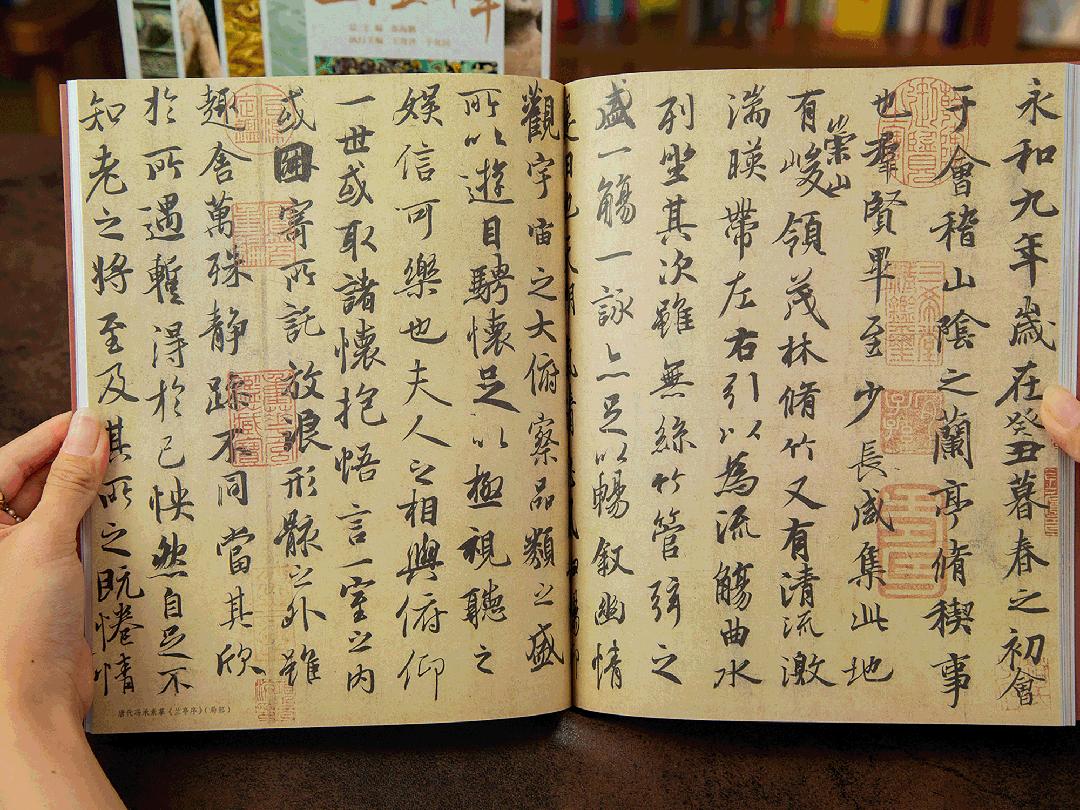 永和九年歲在癸丑暮春之初會
于會稽山陰之蘭亭脩稧事
也羣賢畢至少長咸集此地
有崇山峻領茂林脩竹又有清流激
湍暎帶左右引以為流觴曲水
列坐其次雖無絲竹管弦之
盛一觴一詠亦足以暢敘幽情
觀宇宙之大俯察品類之盛
所以遊目騁懷足以極視聽之
娛信可樂也夫人之相與俯仰
一世或取諸懷抱悟言一室之內
或因寄所託放浪形骸之外雖
趣舍萬殊靜躁不同當其欣
於所遇暫得於己怏然自足不
知老之將至及其所之既惓情
唐代冯承素摹《兰亭序》(局部)